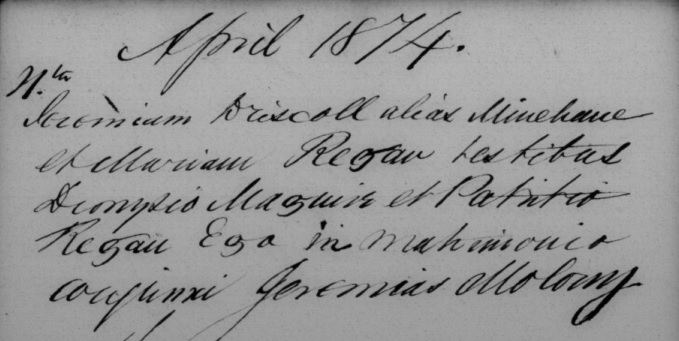 April 1874.
11.th
Jeremiam Driscoll alias Minehane
et Mariam Regan testibus
Dionysio Maguire et Patritio
Regan Ego in matrimonio
conjunxi Jeremias Molony